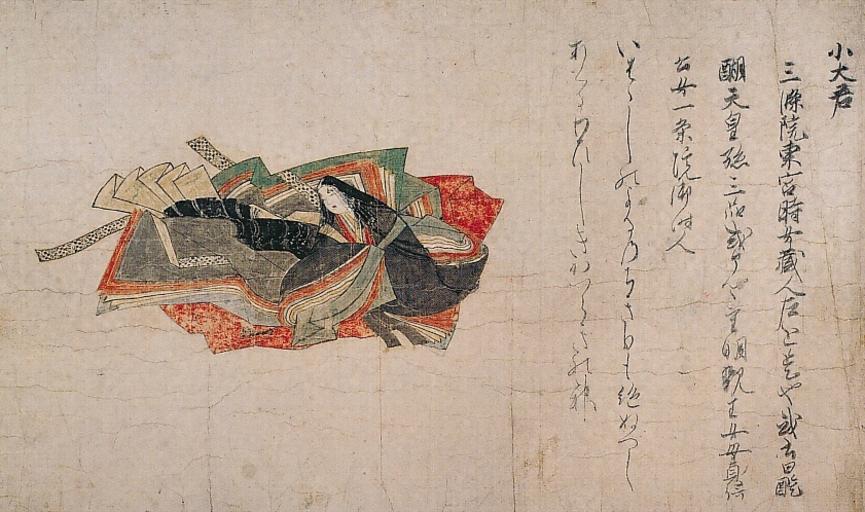 小大君
三條院東宮時女蔵人左近 或 曰醍
醐天皇孫三品式部 重明親王女母貞信
公女一条院御時人
いはゝしのよるのちきりも絶ぬへし
あくるわひしきかつらきの神